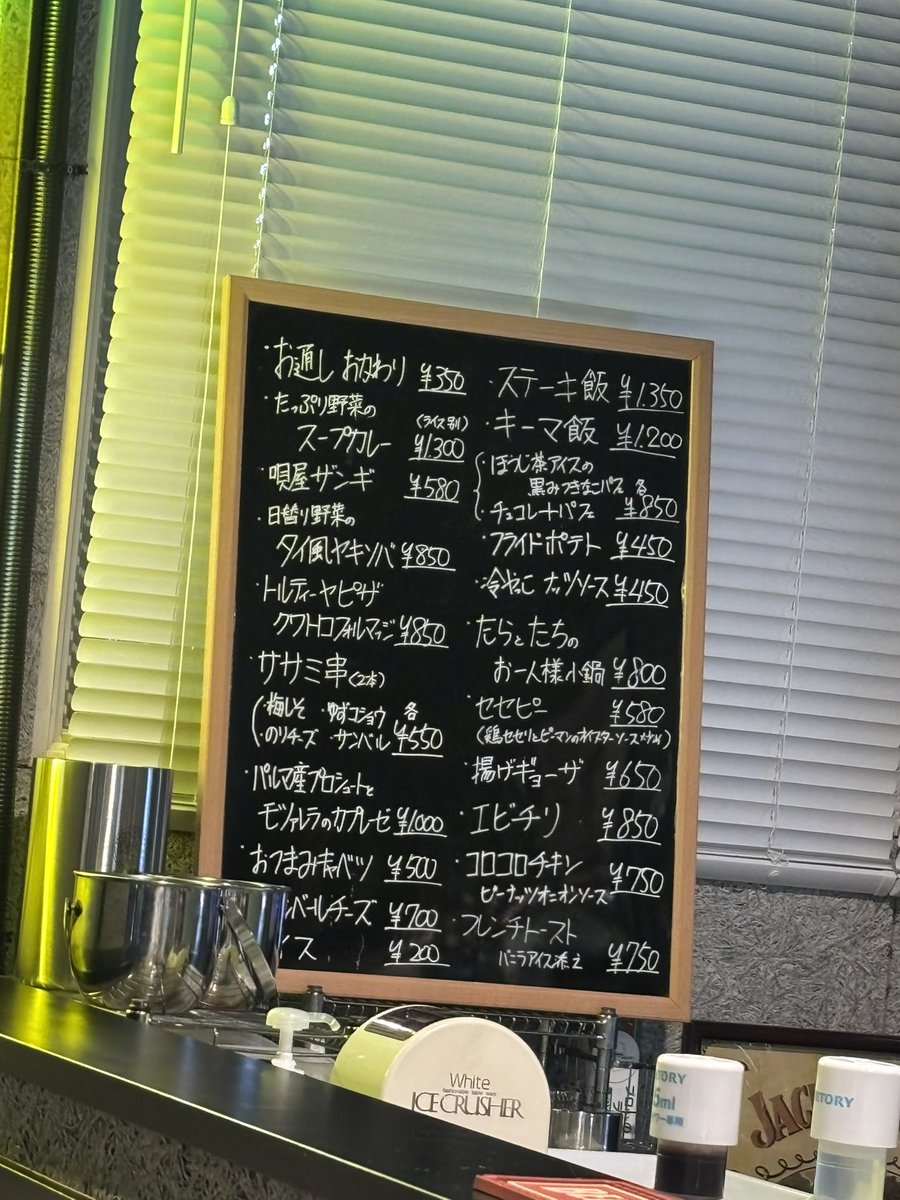 ・お通し おかわり ¥350
・たっぷり野菜の
スープカレー (ライス別) ¥1300
・唄屋ザンギ ¥580
・日替り野菜の
タイ風ヤキソバ ¥850
・トルティーヤピザ
クワトロフォルマッジ ¥850
・ササミ串(2本)
・梅しそ ゆずコショウ 各
・のりチーズ サンバル ¥550
・パルマ産プロシュートと
モツァレラのカプレーゼ ¥1000
・おつまみキャベツ ¥500
ンベールチーズ ¥700
イス ¥200
・ステーキ飯 ¥1,350
・キーマ飯 ¥1,200
・ほうじ茶アイスの
黒みつきなこパフェ 各
・チョコレートパフェ ¥850
・フライドポテト ¥450
・冷やっこ ナッツソース ¥450
・たらとたちの
お一人様小鍋 ¥800
・セセピー ¥580
(鶏セセリとピーマンのオイスターソース炒め)
・揚げギョーザ ¥650
・エビチリ ¥850
・コロコロチキン
ピーナッツオニオンソース ¥750
・フレンチトースト
バニラアイス添え ¥750
White
ICE CRUSHER
TORY
5ml
NTORY
JAC